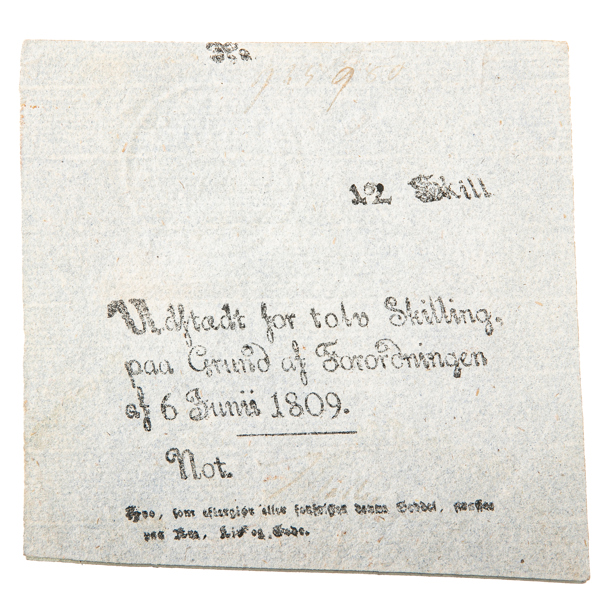 No.
12 Skill
Udstædt for tolv Skilling,
paa Grund af Forordningen
af 6 Junii 1809.
Not.
Hvo, som eftergiør eller forfalsker denne Seddel, straffes
paa Ære, Liv og Gods.